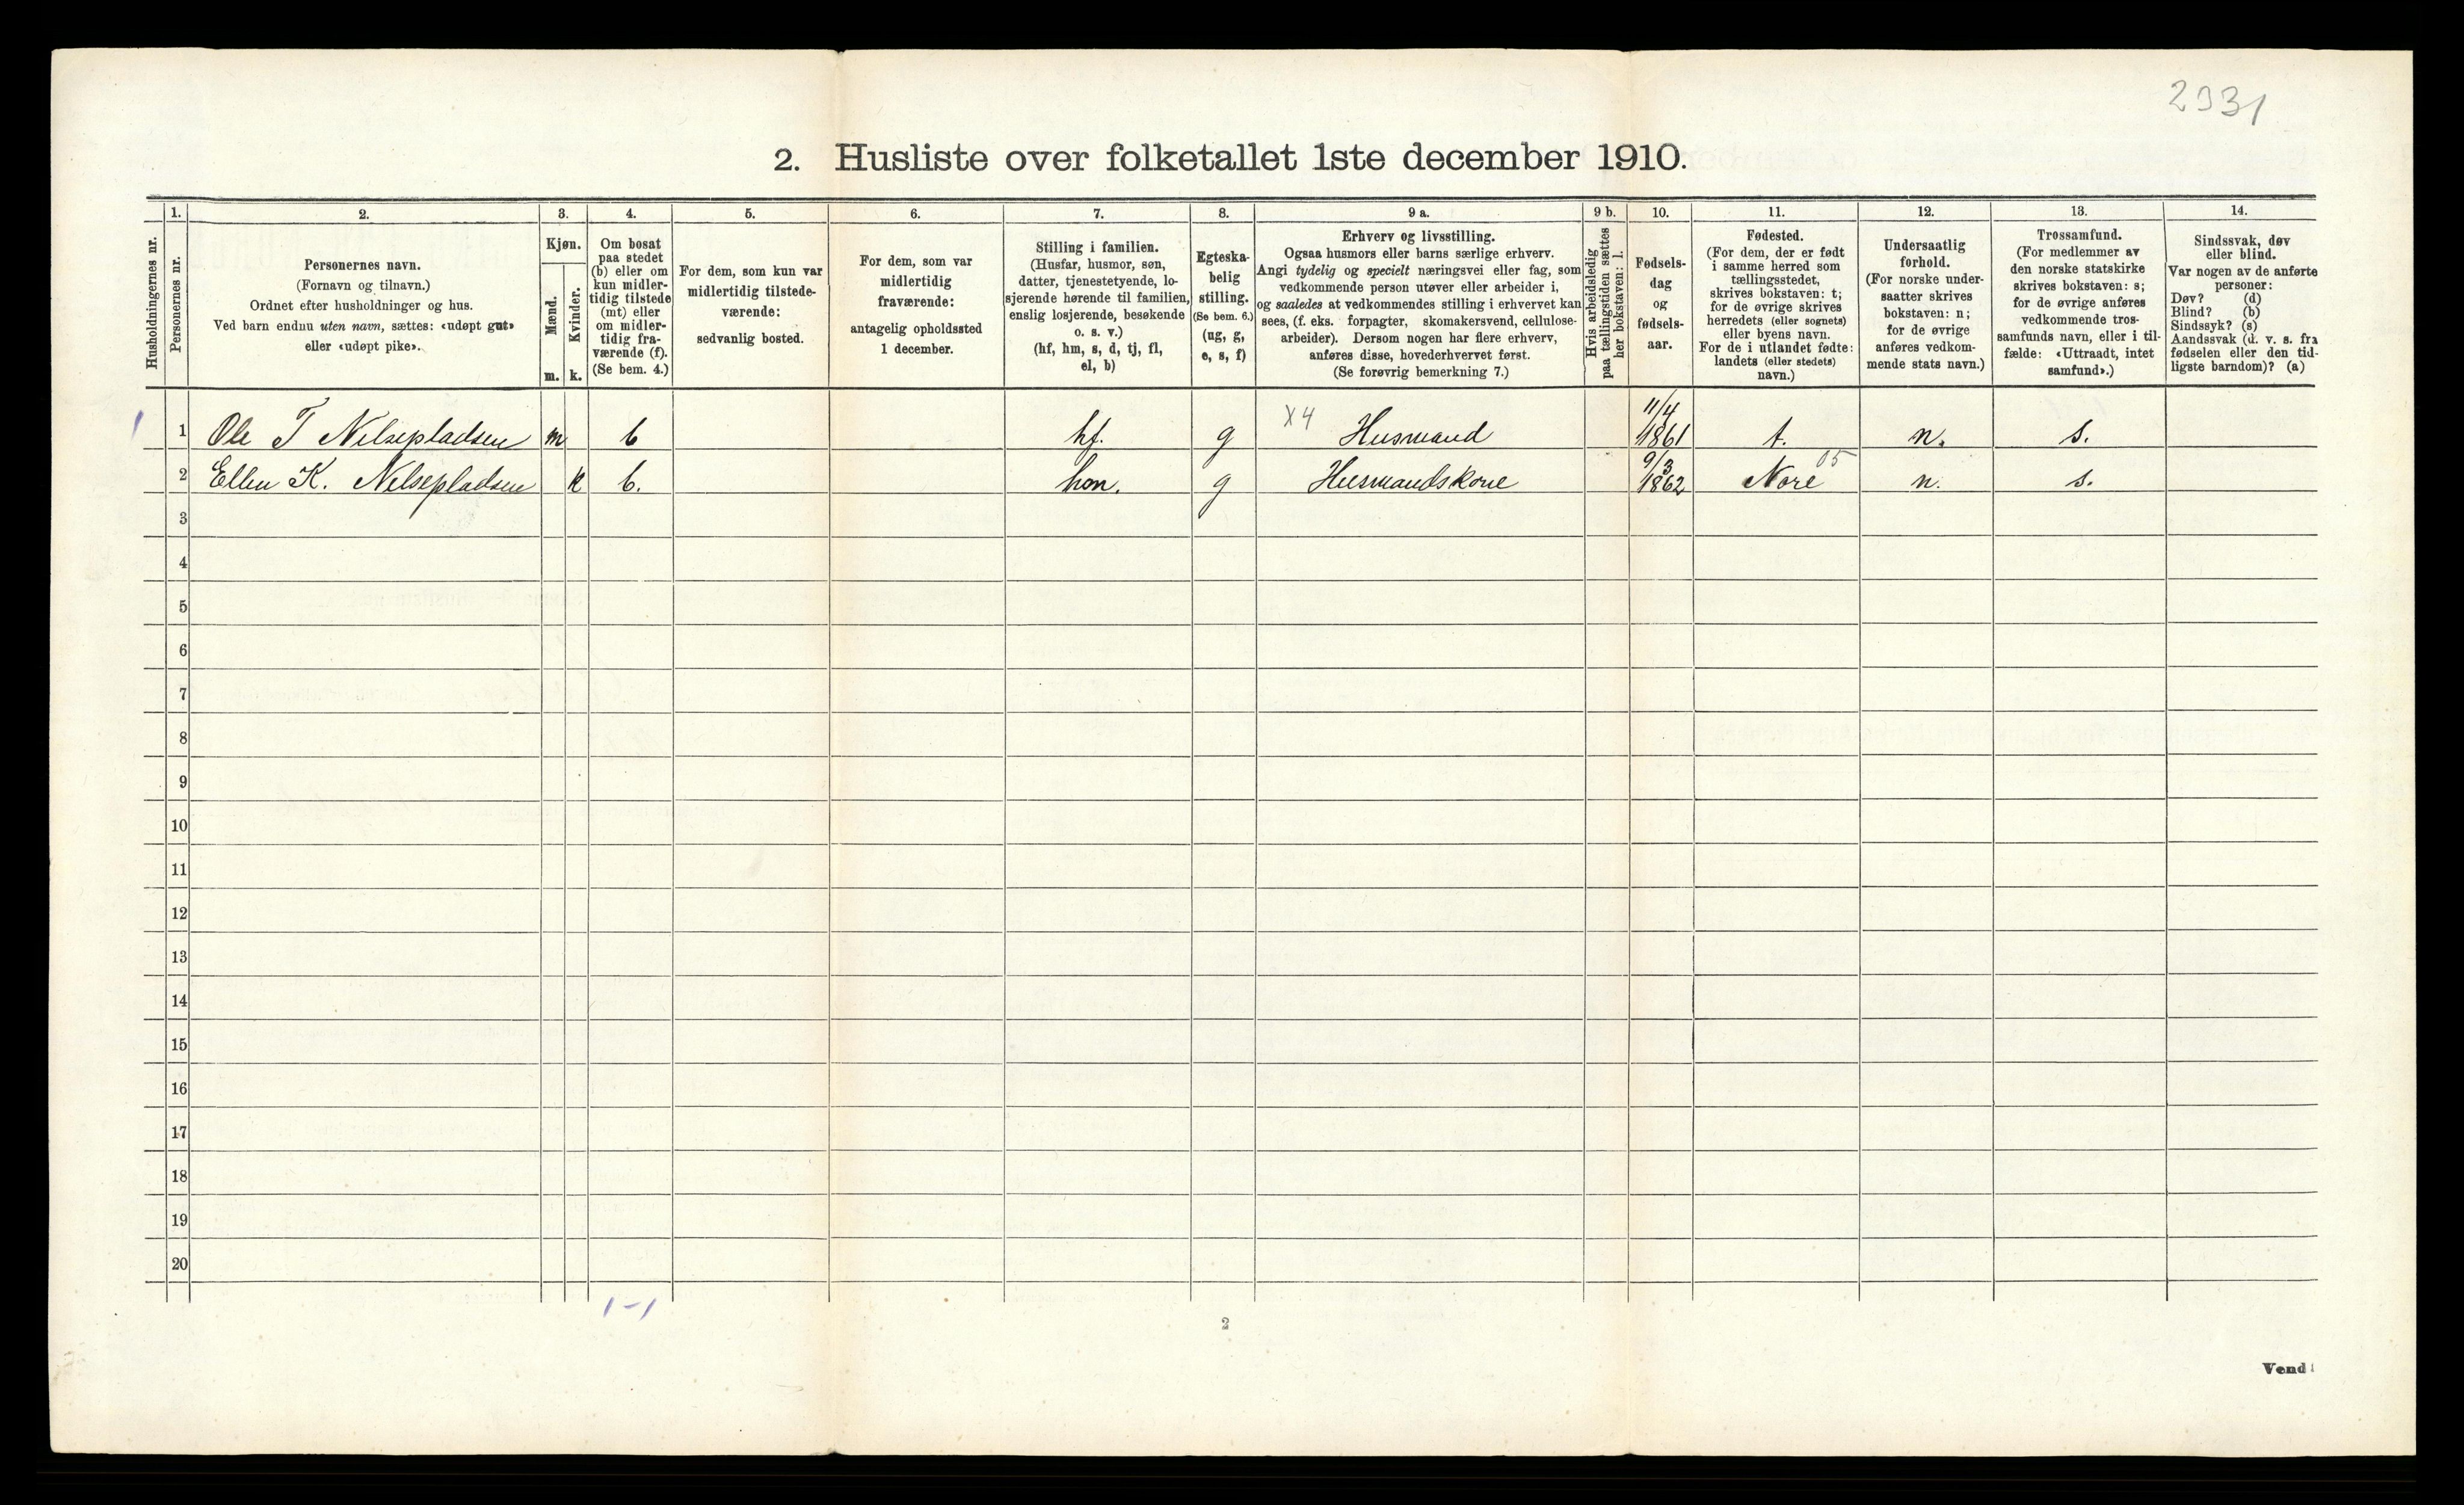 2931
2. Husliste over folketallet 1ste december 1910.
1. 2. 3. 4. 5. 6. 7. 8. 9 a. 9 b. 10. 11. 12. 13. 14.
Husholdningernes nr.
Personernes nr.
Personernes navn.
(Fornavn og tilnavn.)
Ordnet efter husholdninger og hus.
Ved barn endnu uten navn, sættes: «udøpt gut»
eller «udøpt pike».
Kjøn.
Mænd.
Kvinder.
m. k.
Om bosat
paa stedet
(b) eller om
kun midler-
tidig tilstede
(mt) eller
om midler-
tidig fra-
værende (f).
(Se bem. 4.)
For dem, som kun var
midlertidig tilstede-
værende:
sedvanlig bosted.
For dem, som var
midlertidig
fraværende:
antagelig opholdssted
1 december.
Stilling i familien.
(Husfar, husmor, søn,
datter, tjenestetyende, lo-
sjerende hørende til familien,
enslig losjerende, besøkende
o. s. v.)
(hf, hm, s, d, tj, fl,
el, b)
Egteska-
belig
stilling.
(Se bem. 6.)
(ug, g,
e, s, f)
Erhverv og livsstilling.
Ogsaa husmors eller barns særlige erhverv.
Angi tydelig og specielt næringsvei eller fag, som
vedkommende person utøver eller arbeider i,
og saaledes at vedkommendes stilling i erhvervet kan
sees, (f. eks. forpagter, skomakersvend, cellulose-
arbeider). Dersom nogen har flere erhverv,
anføres disse, hovederhvervet først.
(Se forøvrig bemerkning 7.)
Hvis arbeidsledig
paa tællingstiden sættes
her bokstaven: l.
Fødsels-
dag
og
fødsels-
aar.
Fødested.
(For dem, der er født
i samme herred som
tællingsstedet,
skrives bokstaven: t;
for de øvrige skrives
herredets (eller sognets)
eller byens navn.
For de i utlandet fødte:
landets (eller stedets)
navn.)
Undersaatlig
forhold.
(For norske under-
saatter skrives
bokstaven: n;
for de øvrige
anføres vedkom-
mende stats navn.)
Trossamfund.
(For medlemmer av
den norske statskirke
skrives bokstaven: s;
for de øvrige anføres
vedkommende tros-
samfunds navn, eller i til-
fælde: «Uttraadt, intet
samfund».)
Sindssvak, døv
eller blind.
Var nogen av de anførte
personer:
Døv? (d)
Blind? (b)
Sindssyk? (s)
Aandssvak (d. v. s. fra
fødselen eller den tid-
ligste barndom)? (a)
1 1 Ole T Nilsepladsen m b hf. g X4 Husmand 11/4 1861 t. n. s.
2 Ellen K. Nilsepladsen k b. hm. g Husmandskone 9/3 1862 Nore 05 n. s.
3
4
5
6
7
8
9
10
11
12
13
14
15
16
17
18
19
20
1-1
2
Vend!